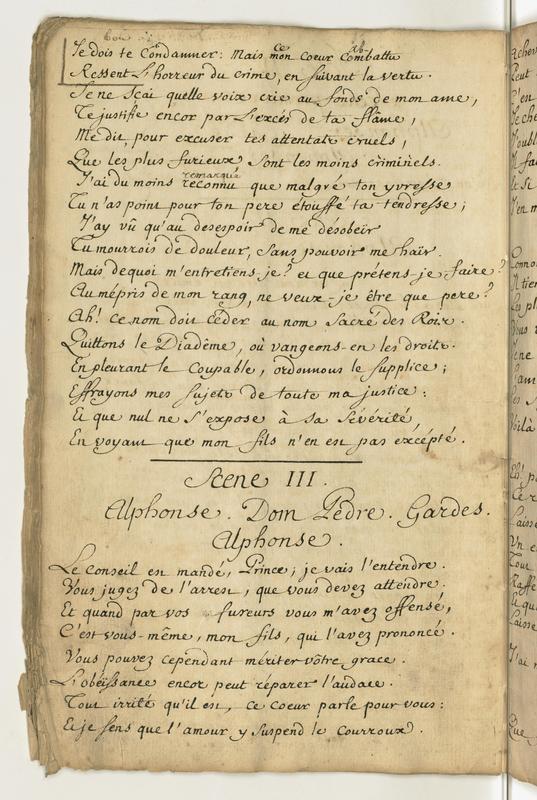 Je dois te Condamner: Mais mon ce coeur Combattu ab-
Ressent L'horreur du crime, en suivant la vertu.
Je ne Scai quelle voix crie au fonds de mon ame,
Te justifie encor par L'excés de ta flâme,
Me dit, pour excuser tes attentats cruels,
Que les plus furieux sont les moins criminels.
J'ai du moins reconnu remarqué que malgré ton yvresse
Tu n'as point pour ton pere étouffé ta tendresse;
J'ay vû qu'au desespoir de me désobeïr
Tu mourrois de douleur, sans pouvoir me haïr.
Mais dequoi m'entretiens-je? et que prétens-je faire?
Au mépris de mon rang, ne veux-je être que pere?
Ah! ce nom doit céder au nom Sacré des Rois.
Quittons le Diadême, où vangeons-en les droits.
En pleurant le Coupable, ordonnons le supplice;
Effrayons mes sujets de toute ma justice:
Et que nul ne s'expose à sa sévérité,
En voyant que mon fils n'en est pas excépté.
Scene III.
Alphonse. Dom Pédre. Gardes.
Alphonse.
Le Conseil en mandé, Prince; je vais l'entendre.
Vous jugez de l'arrest, que vous devez attendre.
Et quand par vos fureurs vous m'avez offensé,
C'est vous-même, mon fils, qui l'avez prononcé.
Vous pouvez cependant mériter vôtre grace.
L'obeïssance encor peut réparer l'audace.
Tout irrité qu'il est, ce coeur parle pour vous:
Et je sens que l'amour y suspend le courroux.